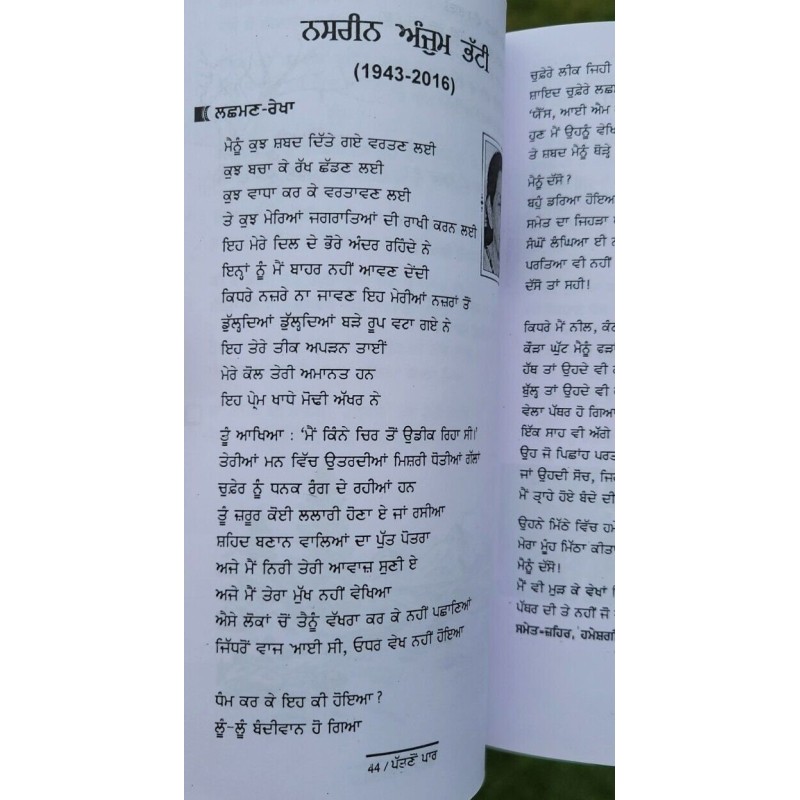 ਨਸਰੀਨ ਅੰਜੁਮ ਭੱਟੀ
(1943-2016)
ਲਛਮਣ-ਰੇਖਾ
ਮੈਨੂੰ ਕੁਝ ਸ਼ਬਦ ਦਿੱਤੇ ਗਏ ਵਰਤਣ ਲਈ
ਕੁਝ ਬਚਾ ਕੇ ਰੱਖ ਛੱਡਣ ਲਈ
ਕੁਝ ਵਾਧਾ ਕਰ ਕੇ ਵਰਤਾਵਣ ਲਈ
ਤੇ ਕੁਝ ਮੇਰਿਆਂ ਜਗਰਾਤਿਆਂ ਦੀ ਰਾਖੀ ਕਰਨ ਲਈ
ਇਹ ਮੇਰੇ ਦਿਲ ਦੇ ਭੋਰੇ ਅੰਦਰ ਰਹਿੰਦੇ ਨੇ
ਇਨ੍ਹਾਂ ਨੂੰ ਮੈਂ ਬਾਹਰ ਨਹੀਂ ਆਵਣ ਦੇਂਦੀ
ਕਿਧਰੇ ਨਜ਼ਰੇ ਨਾ ਜਾਵਣ ਇਹ ਮੇਰੀਆਂ ਨਜ਼ਰਾਂ ਤੋਂ
ਡੁੱਲ੍ਹਦਿਆਂ ਡੁੱਲ੍ਹਦਿਆਂ ਬੜੇ ਰੂਪ ਵਟਾ ਗਏ ਨੇ
ਇਹ ਤੇਰੇ ਤੀਕ ਅਪੜਨ ਤਾਈਂ
ਮੇਰੇ ਕੋਲ ਤੇਰੀ ਅਮਾਨਤ ਹਨ
ਇਹ ਪ੍ਰੇਮ ਖਾਧੇ ਮੋਢੀ ਅੱਖਰ ਨੇ
ਤੂੰ ਆਖਿਆ : 'ਮੈਂ ਕਿੰਨੇ ਚਿਰ ਤੋਂ ਉਡੀਕ ਰਿਹਾ ਸੀ।'
ਤੇਰੀਆਂ ਮਨ ਵਿੱਚ ਉਤਰਦੀਆਂ ਮਿਸ਼ਰੀ ਧੋਤੀਆਂ ਗੱਲਾਂ
ਚੁਫ਼ੇਰ ਨੂੰ ਧਨਕ ਰੰਗ ਦੇ ਰਹੀਆਂ ਹਨ
ਤੂੰ ਜ਼ਰੂਰ ਕੋਈ ਲਲਾਰੀ ਹੋਣਾ ਏ ਜਾਂ ਰਸੀਆ
ਸ਼ਹਿਦ ਬਣਾਨ ਵਾਲਿਆਂ ਦਾ ਪੁੱਤ ਪੋਤਰਾ
ਅਜੇ ਮੈਂ ਨਿਰੀ ਤੇਰੀ ਆਵਾਜ਼ ਸੁਣੀ ਏ
ਅਜੇ ਮੈਂ ਤੇਰਾ ਮੁੱਖ ਨਹੀਂ ਵੇਖਿਆ
ਐਸੇ ਲੋਕਾਂ ਚੋਂ ਤੈਨੂੰ ਵੱਖਰਾ ਕਰ ਕੇ ਨਹੀਂ ਪਛਾਣਿਆਂ
ਜਿੱਧਰੋਂ ਵਾਜ ਆਈ ਸੀ, ਓਧਰ ਵੇਖ ਨਹੀਂ ਹੋਇਆ
ਧੰਮ ਕਰ ਕੇ ਇਹ ਕੀ ਹੋਇਆ ?
ਲੂੰ-ਲੂੰ ਬੰਦੀਵਾਨ ਹੋ ਗਿਆ
44 / ਪੱਤਣੋਂ ਪਾਰ
ਚੁਫ਼ੇਰੇ ਲੀਕ ਜਿਹੀ
ਸ਼ਾਇਦ ਚੁਫ਼ੇਰੇ
'ਯੈੱਸ, ਆਈ ਐਮ
ਹੁਣ ਮੈਂ ਉਹਨੂੰ
ਤੇ ਸ਼ਬਦ ਮੈਨੂੰ ਥੋੜ੍ਹੇ
ਮੈਨੂੰ ਦੱਸੋ ?
ਬਹੁੰ ਡਰਿਆ ਹੋਇਆ
ਸਮੇਤ ਦਾ ਜਿਹੜਾ
ਸੰਘੋਂ ਲੰਘਿਆ ਈ
ਪਰਤਿਆ ਵੀ ਨਹੀਂ
ਦੱਸੋ ਤਾਂ ਸਹੀ!
ਕਿਧਰੇ ਮੈਂ ਨੀਲ,
ਕੌੜਾ ਘੁੱਟ ਮੈਨੂੰ
ਹੱਥ ਤਾਂ ਉਹਦੇ ਵੀ
ਬੁੱਲ੍ਹ ਤਾਂ ਉਹਦੇ ਵੀ
ਵੇਲਾ ਪੱਥਰ ਹੋ ਗਿਆ
ਇੱਕ ਸਾਹ ਵੀ ਅੱਗੇ
ਉਹ ਜੋ ਪਿਛਾਂਹ
ਜਾਂ ਉਹਦੀ ਸੋਚ,
ਮੈਂ ਤ੍ਰਾਹੇ ਹੋਏ ਬੰਦੇ ਦੀ
ਉਹਨੇ ਮਿੱਠੇ ਵਿੱਚ
ਮੇਰਾ ਮੂੰਹ ਮਿੱਠਾ ਕੀਤਾ
ਮੈਨੂੰ ਦੱਸੋ!
ਮੈਂ ਵੀ ਮੁੜ ਕੇ ਵੇਖਾਂ
ਪੱਥਰ ਦੀ ਤੇ ਨਹੀਂ ਜੋ
ਸਮੇਤ-ਜ਼ਹਿਰ,